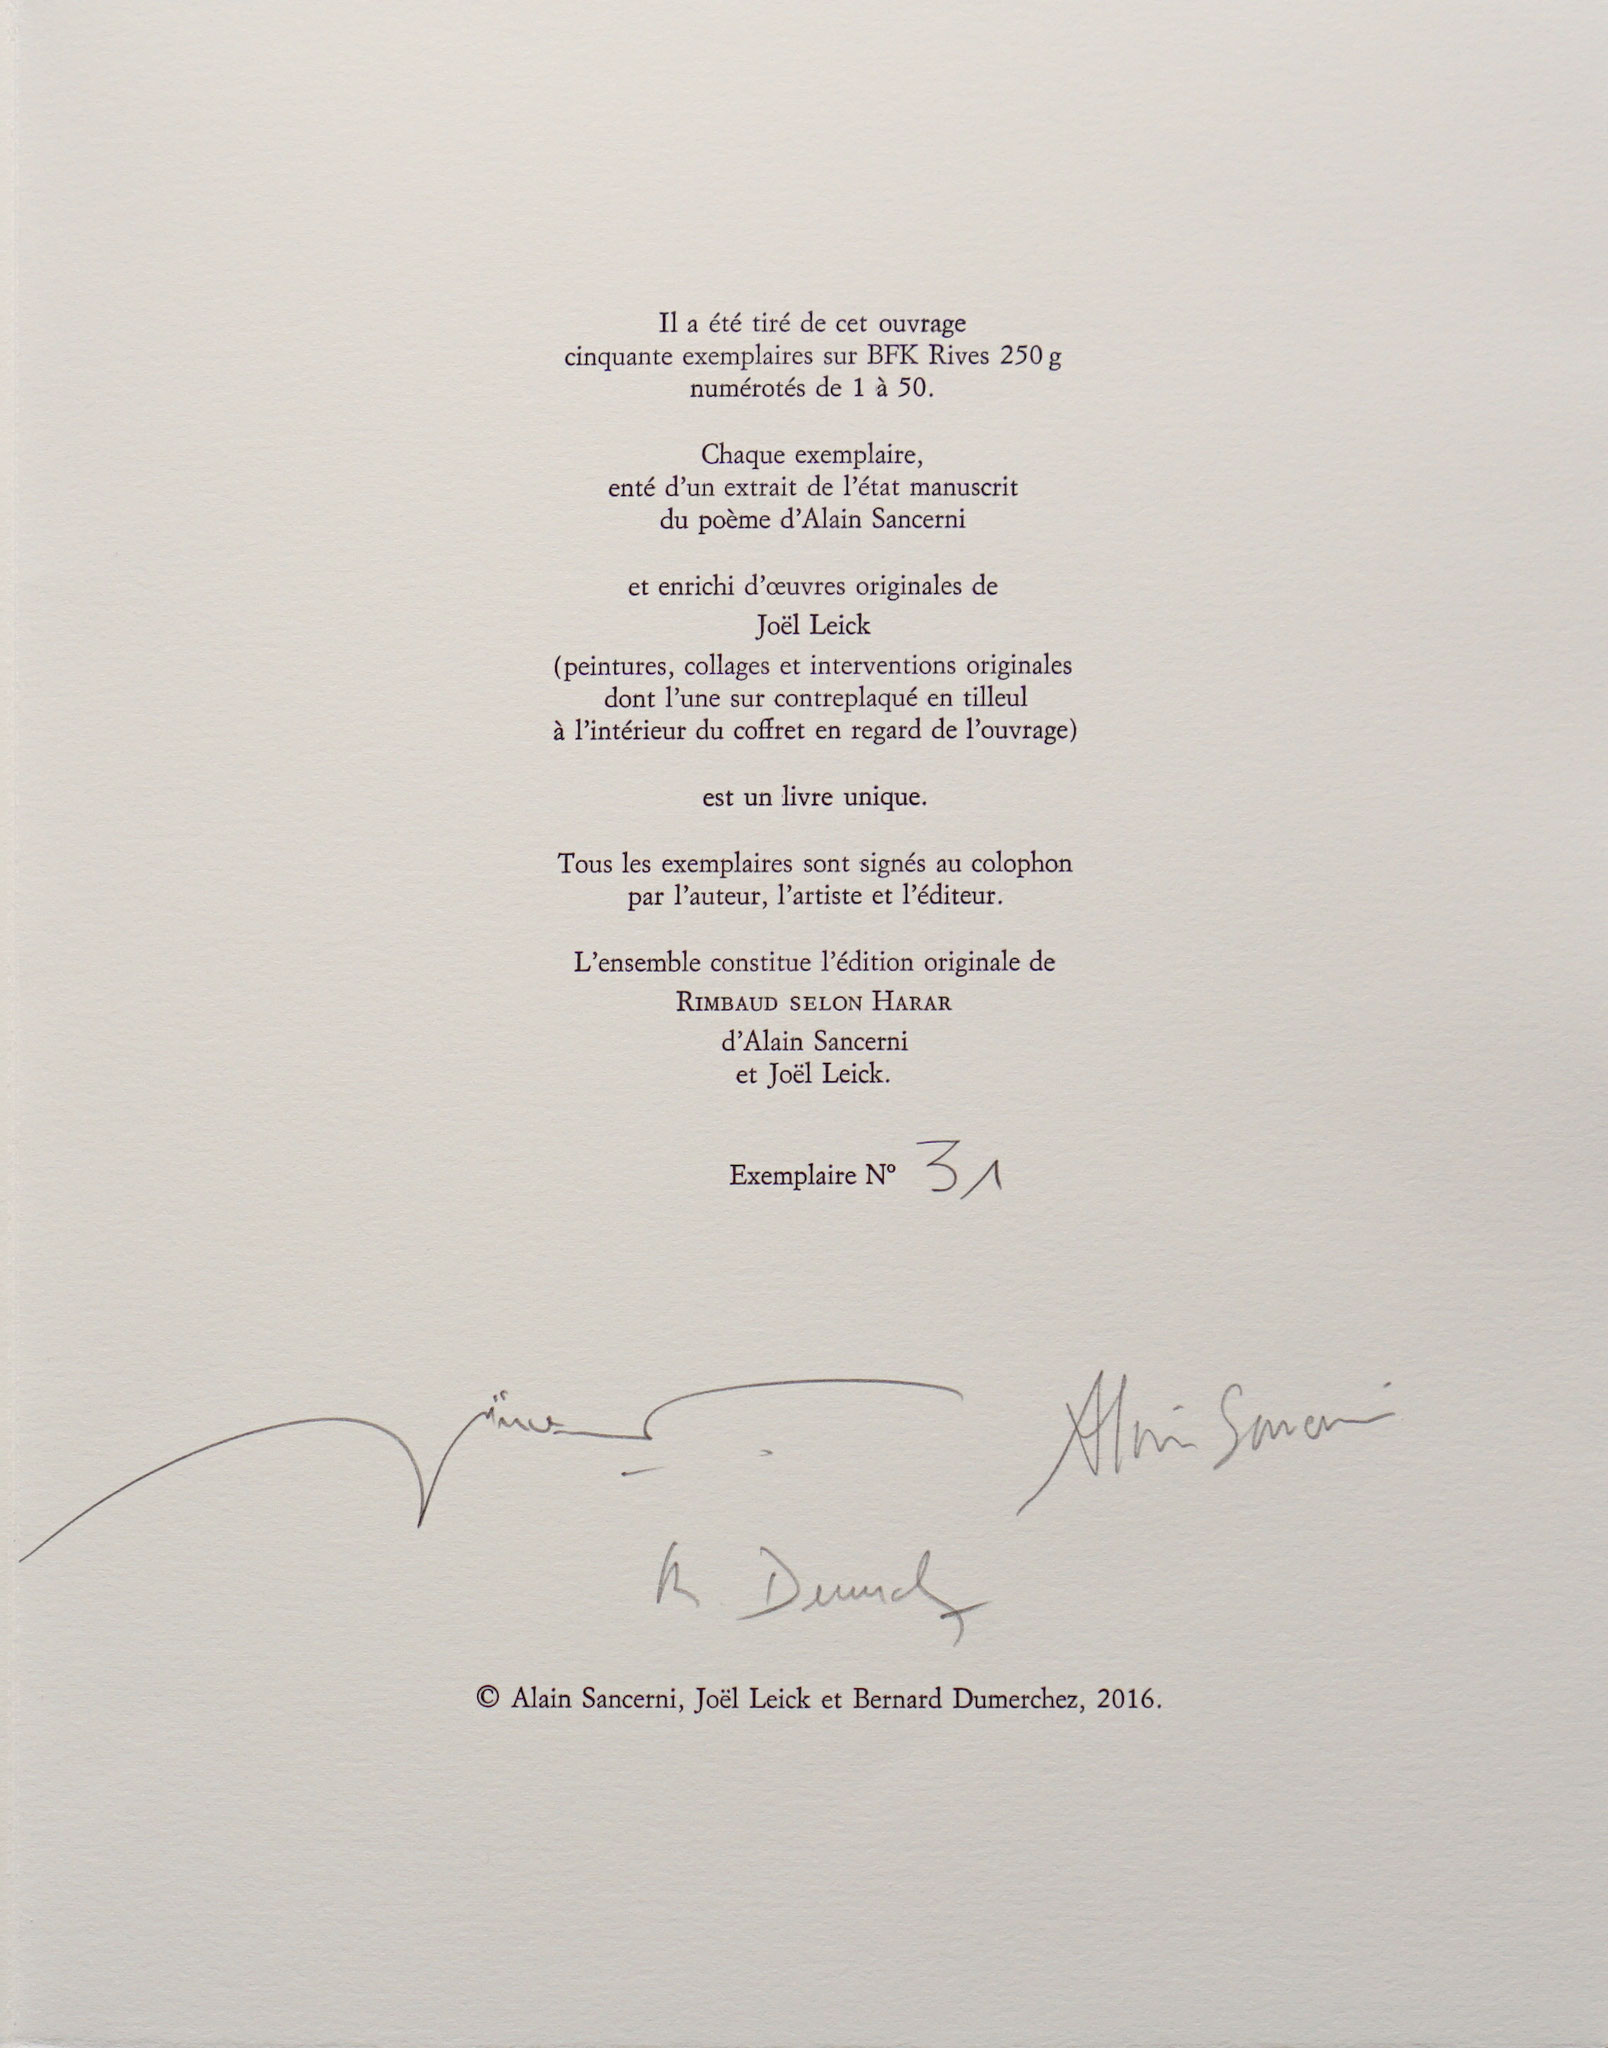 Il a été tiré de cet ouvrage
cinquante exemplaires sur BFK Rives 250 g
numérotés de 1 à 50.
Chaque exemplaire,
enté d’un extrait de l’état manuscrit
du poème d’Alain Sancerni
et enrichi d’œuvres originales de
Joël Leick
(peintures, collages et interventions originales
dont l’une sur contreplaqué en tilleul
à l’intérieur du coffret en regard de l’ouvrage)
est un livre unique.
Tous les exemplaires sont signés au colophon
par l’auteur, l’artiste et l’éditeur.
L’ensemble constitue l’édition originale de
RIMBAUD SELON HARAR
d’Alain Sancerni
et Joël Leick.
Exemplaire Nº 31
Alain Sancerni
© Alain Sancerni, Joël Leick et Bernard Dumerchez, 2016.